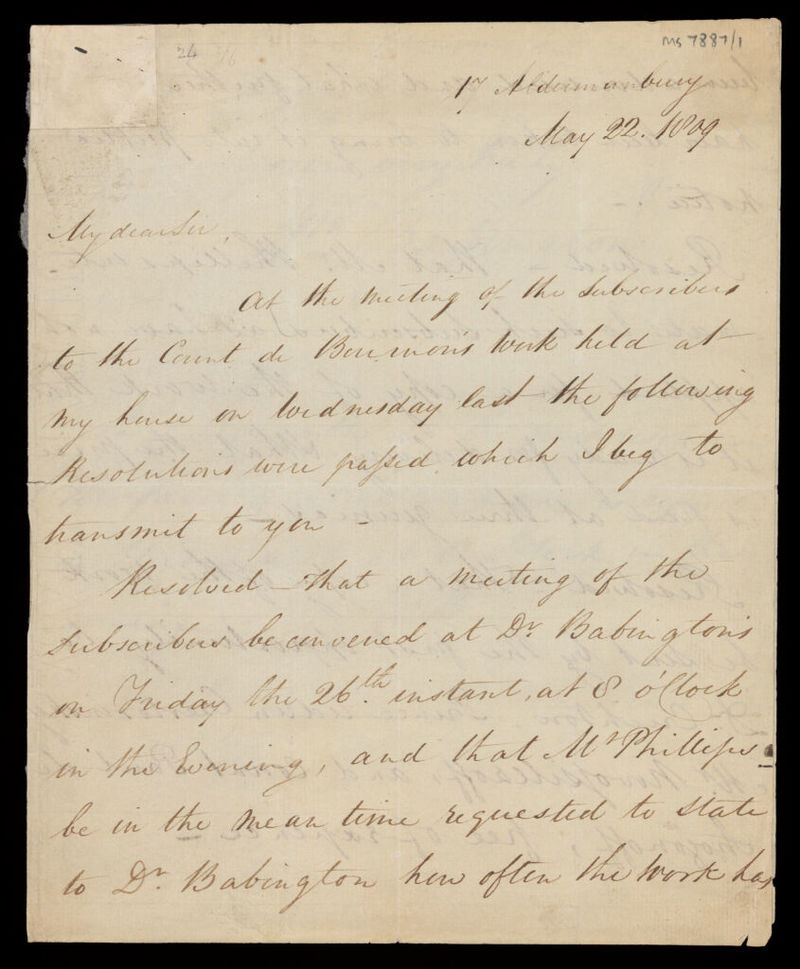 24
MS 7887/1
17 Aldermanbury
May 22. 1809
My dear Sir,
At the Meeting of the Subscribers
to the Count de Bournon's Work held at
my house on Wednesday last the following
Resolutions were passed which I beg to
transmit to you -
Resolved - That a meeting of the
Subscribers be convened at Dr. Babington's
on Friday the 26th. instant, at 8 o'Clock
in the Evening, and that Mr Phillips
be in the mean time requested to state
to Dr. Babington how often the Work has